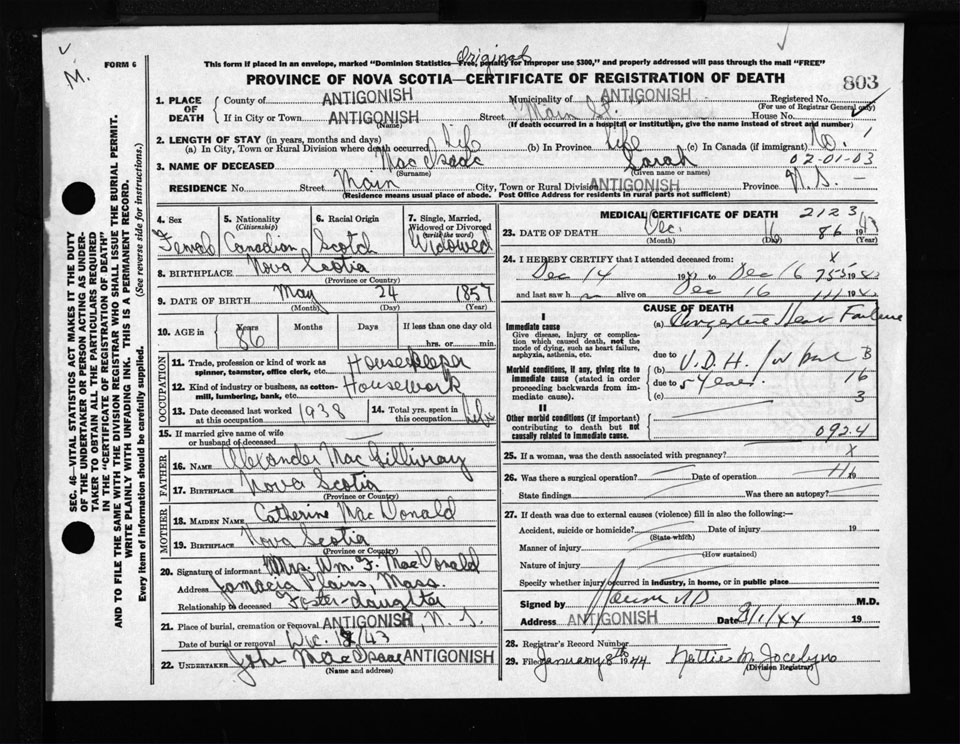 M.
FORM 6
Original
This form if placed in an envelope, marked "Dominion Statistics—Free, penalty for improper use $300," and properly addressed will pass through the mail "FREE"
PROVINCE OF NOVA SCOTIA—CERTIFICATE OF REGISTRATION OF DEATH
803
1. PLACE OF DEATH County of ANTIGONISH Municipality of ANTIGONISH Registered No.
(For use of Registrar General only)
If in City or Town ANTIGONISH Street Main St. House No.
(Name) (If death occurred in a hospital or institution, give the name instead of street and number)
2. LENGTH OF STAY (in years, months and days)
(a) In City, Town or Rural Division where death occurred life (b) In Province life (c) In Canada (if immigrant) No.
02-01-03
3. NAME OF DECEASED Mac Isaac Sarah
(Surname) (Given name or names)
RESIDENCE No. Street Main City, Town or Rural Division ANTIGONISH Province N. S.
(Residence means usual place of abode. Post Office Address for residents in rural parts not sufficient)
SEC. 46—VITAL STATISTICS ACT MAKES IT THE DUTY
OF THE UNDERTAKER OR PERSON ACTING AS UNDERTAKER TO OBTAIN ALL THE PARTICULARS REQUIRED
IN THE "CERTIFICATE OF REGISTRATION OF DEATH"
AND TO FILE THE SAME WITH THE DIVISION REGISTRAR WHO SHALL ISSUE THE BURIAL PERMIT.
WRITE PLAINLY WITH UNFADING INK. THIS IS A PERMANENT RECORD.
Every item of information should be carefully supplied. (See reverse side for instructions.)
4. Sex 5. Nationality 6. Racial Origin 7. Single, Married,
(Citizenship) Widowed or Divorced
(write the word)
Female Canadian Scotch Widowed
8. BIRTHPLACE Nova Scotia
(Province or Country)
9. DATE OF BIRTH May 24 1857
(Month) (Day) (Year)
10. AGE in Years Months Days If less than one day old
86 hrs. or min.
OCCUPATION
11. Trade, profession or kind of work as Housekeeper
spinner, teamster, office clerk, etc.
12. Kind of industry or business, as cotton- Housework
mill, lumbering, bank, etc.
13. Date deceased last worked 1938 14. Total yrs. spent in life
at this occupation this occupation
15. If married give name of wife
or husband of deceased
FATHER
16. NAME Alexander Mac Gillivray
17. BIRTHPLACE Nova Scotia
(Province or Country)
MOTHER
18. MAIDEN NAME Catherine Mac Donald
19. BIRTHPLACE Nova Scotia
(Province or Country)
20. Signature of informant Mrs. Wm. F. MacDonald
Address Jamacia Plains, Mass.
Relationship to deceased Foster-daughter
21. Place of burial, cremation or removal ANTIGONISH, N. S.
Date of burial or removal Dec. 18/43
22. UNDERTAKER John Mac Isaac ANTIGONISH
(Name and address)
MEDICAL CERTIFICATE OF DEATH 2123
23. DATE OF DEATH Dec. 16 86 1943
(Month) (Day) (Year)
24. I HEREBY CERTIFY that I attended deceased from: X
Dec 14 1943 to Dec 16 1943
and last saw h alive on Dec 16 1943
CAUSE OF DEATH
I
Immediate cause
Give disease, injury or complication which caused death, not the mode of dying, such as heart failure, asphyxia, asthenia, etc.
(a) Congestive Heart Failure
due to
Morbid conditions, if any, giving rise to immediate cause (stated in order proceeding backwards from immediate cause).
(b) V.D.H. for past B
due to 5 years. 16
(c) 3
II
Other morbid conditions (if important) contributing to death but not causally related to immediate cause.
092.4
25. If a woman, was the death associated with pregnancy? X
26. Was there a surgical operation? Date of operation
State findings Was there an autopsy?
27. If death was due to external causes (violence) fill in also the following:—
Accident, suicide or homicide? Date of injury 19
(State which)
Manner of injury
(How sustained)
Nature of injury
Specify whether injury occurred in industry, in home, or in public place
Signed by M.D.
Address ANTIGONISH Date 8/1/44 19
28. Registrar's Record Number
29. Filed January 8th 1944 Nettie M. Jocelyn
(Division Registrar)